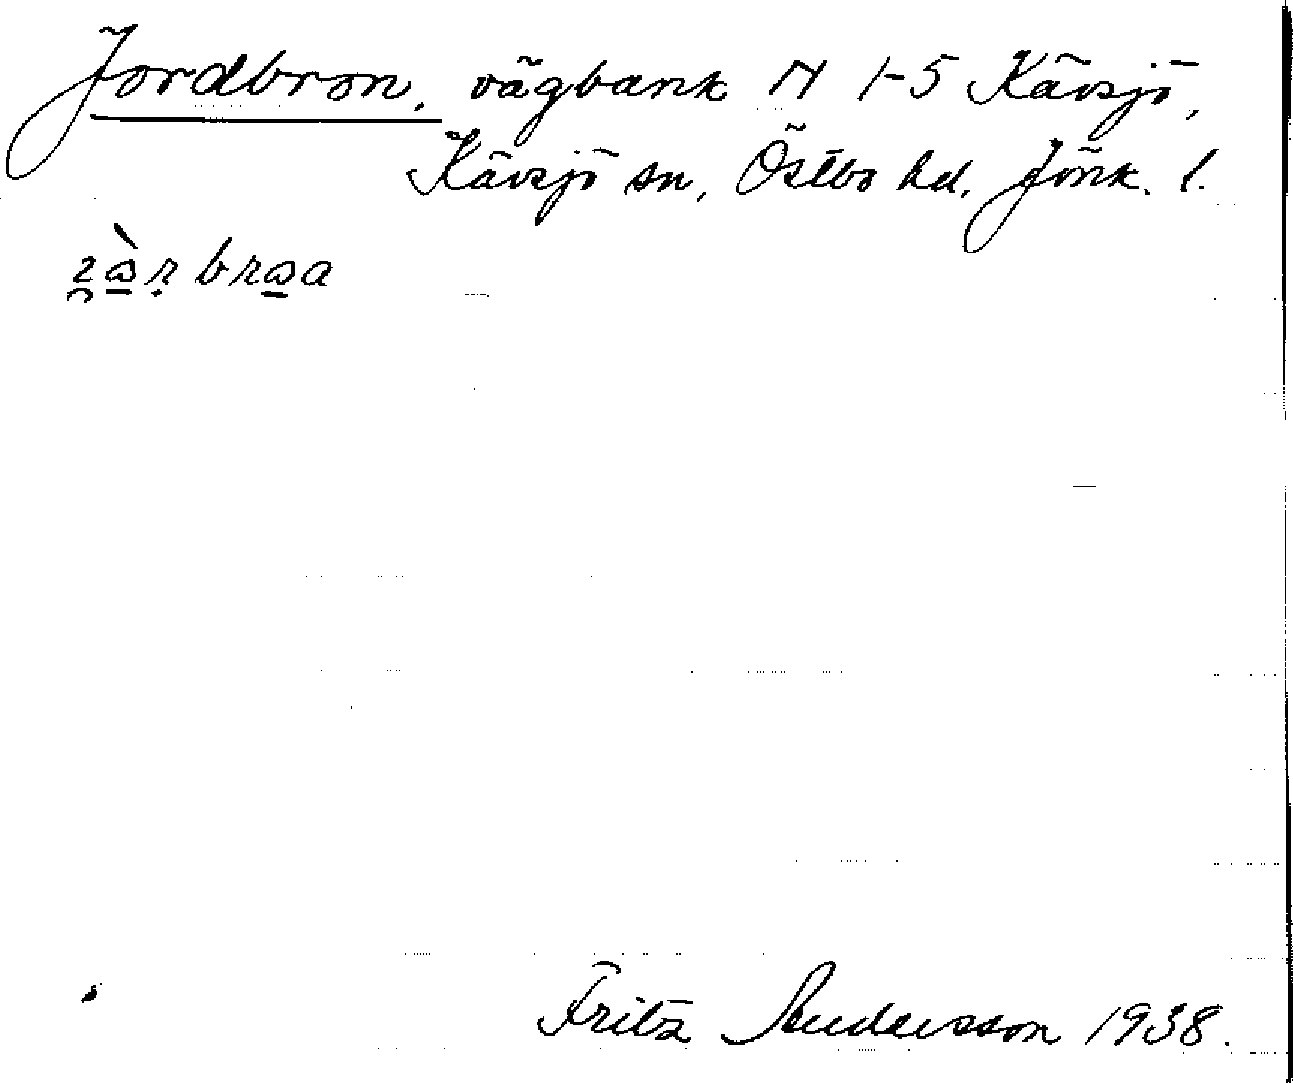 Jordbron, vägbank N 1-5 Kävsjö,
Kävsjö sn, Östbo hd. Jönk. l.
Fritz Andersson 1938.